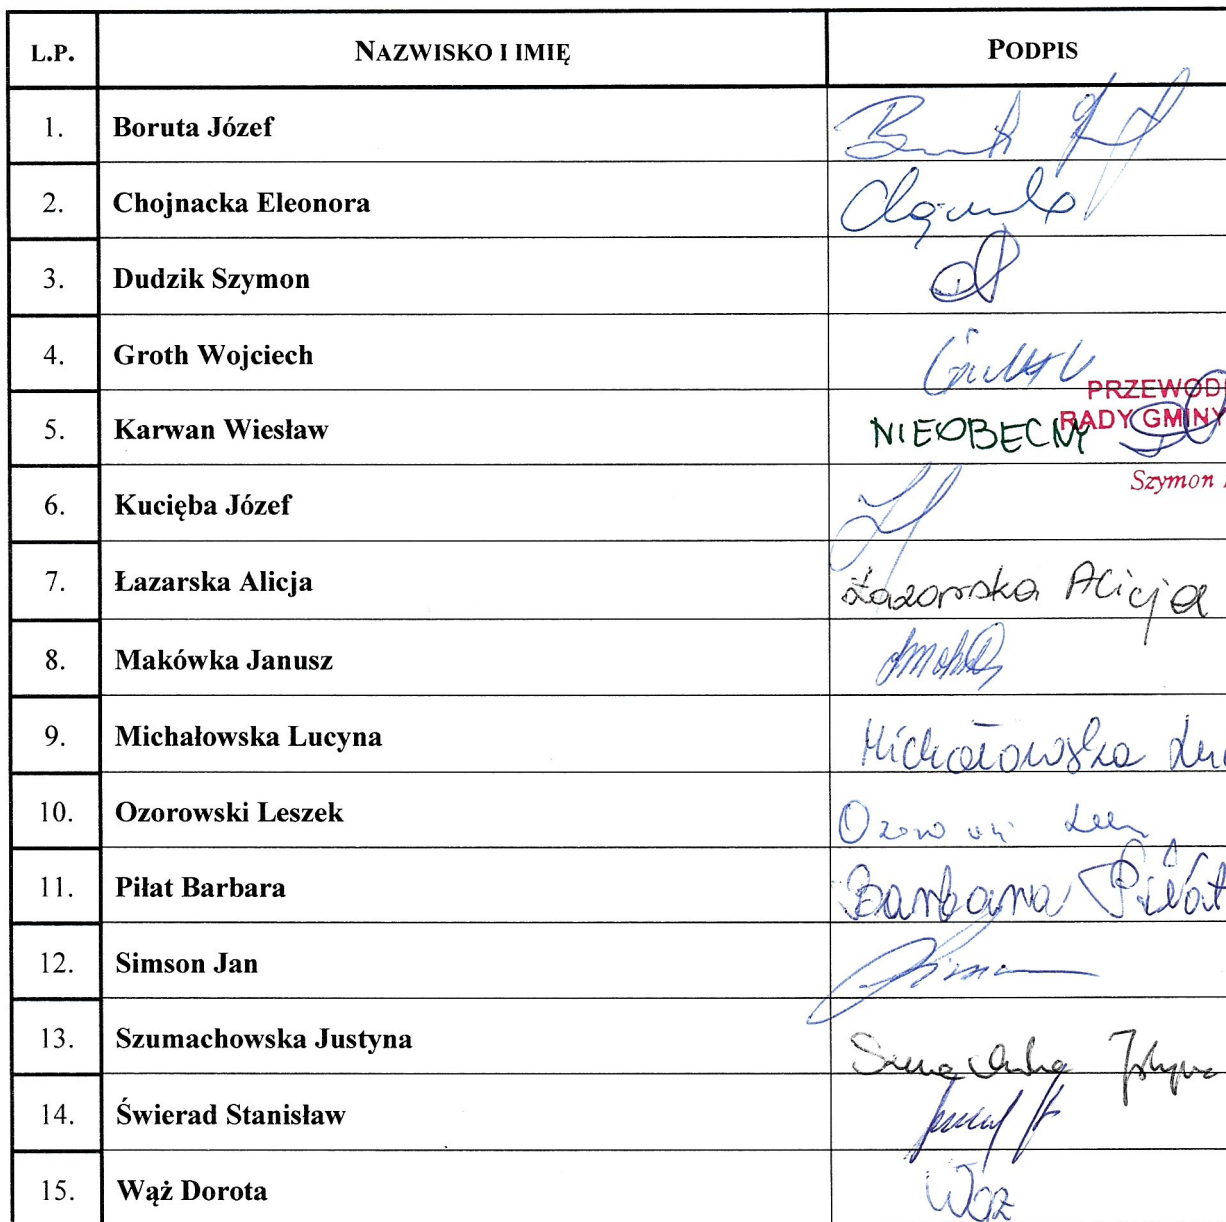 L.P. NAZWISKO I IMIĘ PODPIS
1. Boruta Józef
2. Chojnacka Eleonora
3. Dudzik Szymon
4. Groth Wojciech
PRZEWOD
5. Karwan Wiesław NIEOBECNY RADY GMINY
Szymon
6. Kucięba Józef
7. Łazarska Alicja Łazarska Alicja
8. Makówka Janusz
9. Michałowska Lucyna Michałowska
10. Ozorowski Leszek
11. Piłat Barbara Barbara Piłat
12. Simson Jan
13. Szumachowska Justyna
14. Świerad Stanisław
15. Wąż Dorota Wąż